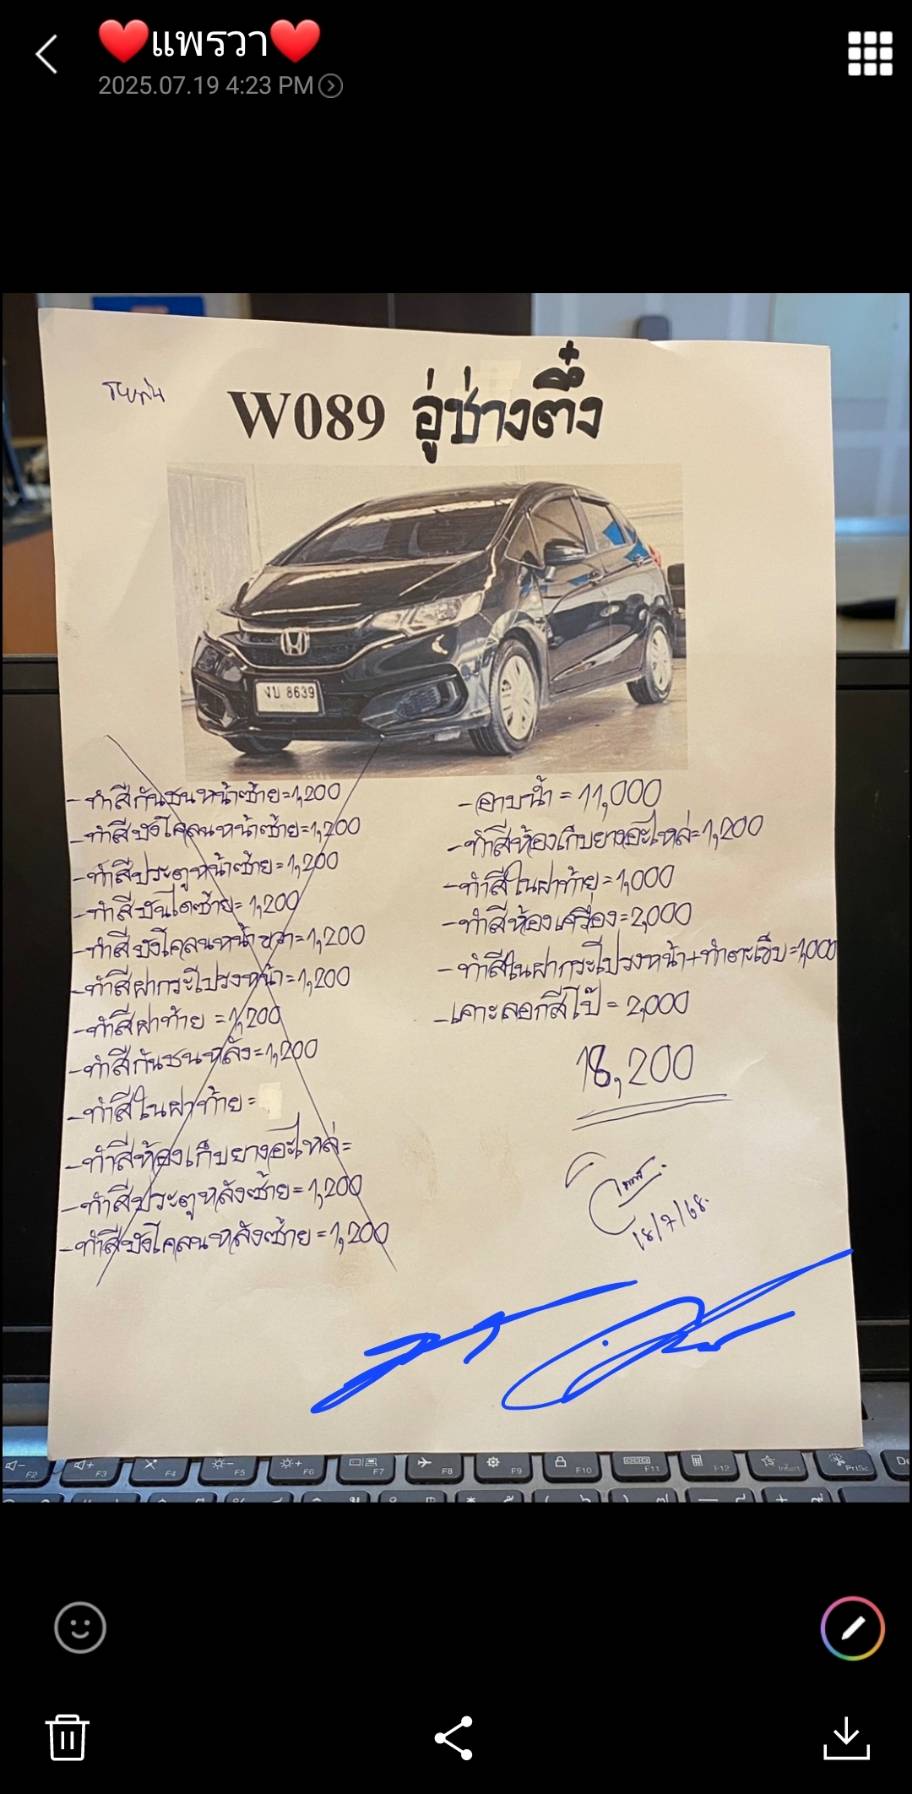 ❤️แพรวา❤️
2025.07.19 4:23 PM
W089 อู่ช่างตึ๋ง
งบ 8639
-ทำสีกันชนหน้าซ้าย=1,200
-ทำสีบังโคลนหน้าซ้าย=1,200
-ทำสีประตูหน้าซ้าย=1,200
-ทำสีบันไดซ้าย=1,200
-ทำสีบังโคลนหน้าขวา=1,200
-ทำสีฝากระโปรงหน้า=1,200
-ทำสีฝาท้าย=1,200
-ทำสีกันชนหลัง=1,200
-ทำสีในฝาท้าย=
-ทำสีห้องเก็บยางอะไหล่=
-ทำสีประตูหลังซ้าย=1,200
-ทำสีบังโคลนหลังซ้าย=1,200
-อาบน้ำ=11,000
-ทำสีห้องเก็บยางอะไหล่=1,200
-ทำสีในฝาท้าย=1,000
-ทำสีห้องเครื่อง=2,000
-ทำสีในฝากระโปรงหน้า+ทำตะเข็บ=1,000
-เคาะลอกสีโป๊=2,000
18,200
18/7/68.
F2
F3
F4
F5
F6
F7
F8
F9
F10
F11
F12
Insert
PrtSc